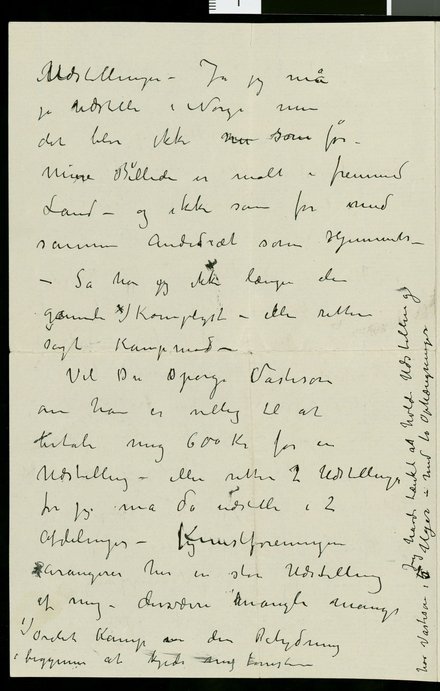 Udstillinger – Ja jeg må
jo udstille i Norge men
det blir ikke som før –
Mine Billeder er malt i fremmed
Land – og ikke som før med
samme Andedræt som Hjemmets –
– Så har jeg ikke længer den
gamle x) Kamplyst – eller rettere
sagt Kampmod –
Vil De spørge Vastesen
om han er villig til at
betale mig 600 Kr for en
Udstilling – eller rettere 2 Udstillinger
for jeg må da udstille i 2
Afdelinger – Kunstforeningen
arangerer her en stor Udstilling
af mig – desværre mangler mange
1) Ordet Kamp den Betydning
i begynner at
Jeg havde tænkt at holde Udstilling
hos Vastesen i Uger – med to Ophængninger